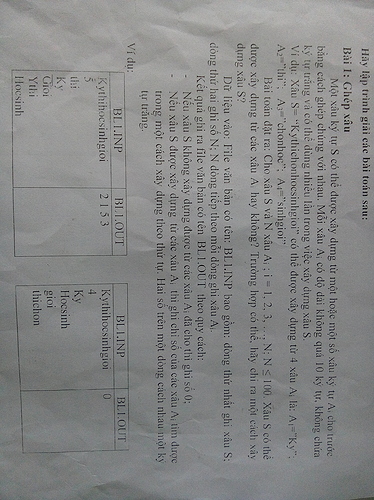 Hãy lập trình giải các bài toán sau:
Bài 1: Ghép xâu
Mỗi xâu ký tự S có thể được xây dựng từ một hoặc một số xâu ký tự Aᵢ cho trước
bằng cách ghép chúng với nhau. Mỗi xâu Aᵢ có độ dài không quá 10 ký tự, không chứa
ký tự trắng và có thể dùng nhiều lần trong việc xây dựng xâu S.
Ví dụ: Xâu S = "Kythichonhocsinhgioi" có thể được xây dựng từ 4 xâu Aᵢ là: A₁="Ky";
A₂="thi"; A₃="chonhoc"; A₄="sinhgioi"
Bài toán đặt ra: Cho xâu S và N xâu Aᵢ ; i = 1, 2, 3, ..., N; N ≤ 100. Xâu S có thể
được xây dựng từ các xâu Aᵢ hay không? Trường hợp có thể, hãy chỉ ra một cách xây
dựng xâu S?
Dữ liệu vào: File văn bản có tên: BL1.INP bao gồm: dòng thứ nhất ghi xâu S;
dòng thứ hai ghi số N; N dòng tiếp theo mỗi dòng ghi xâu Aᵢ.
Kết quả ghi ra file văn bản có tên BL1.OUT theo quy cách:
- Nếu xâu S không xây dựng được từ các xâu Aᵢ đã cho thì ghi số 0;
- Nếu xâu S được xây dựng từ các xâu Aᵢ thì ghi chỉ số của các xâu Aᵢ tìm được
trong một cách xây dựng theo thứ tự. Hai số trên một dòng cách nhau một ký
tự trắng.
Ví dụ:
BL1.INP BL1.OUT
Kythihocsinhgioi 2 1 5 3
5
thi
Ky
Gioi
Ythi
Hocsinh
BL1.INP BL1.OUT
Kythihocsinhgioi 0
4
Ky
Hocsinh
gioi
thichon